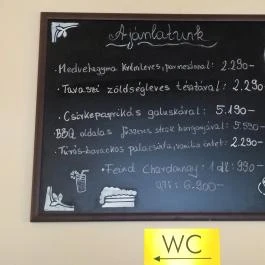 Ajánlatunk
• Medvehagyma krémleves, parmezánnal: 2.290-
• Tavaszi zöldségleves tésztával: 2.290-
• Csirkepaprikás galuskával: 5.190-
BBQ oldalas fűszeres steak burgonyával: 5.590-
• Túrós-barackos palacsinta, vanília öntet: 2.290-
• Feind Chardonnay: 1 dl: 990-
0,75 l: 6.900-
WC